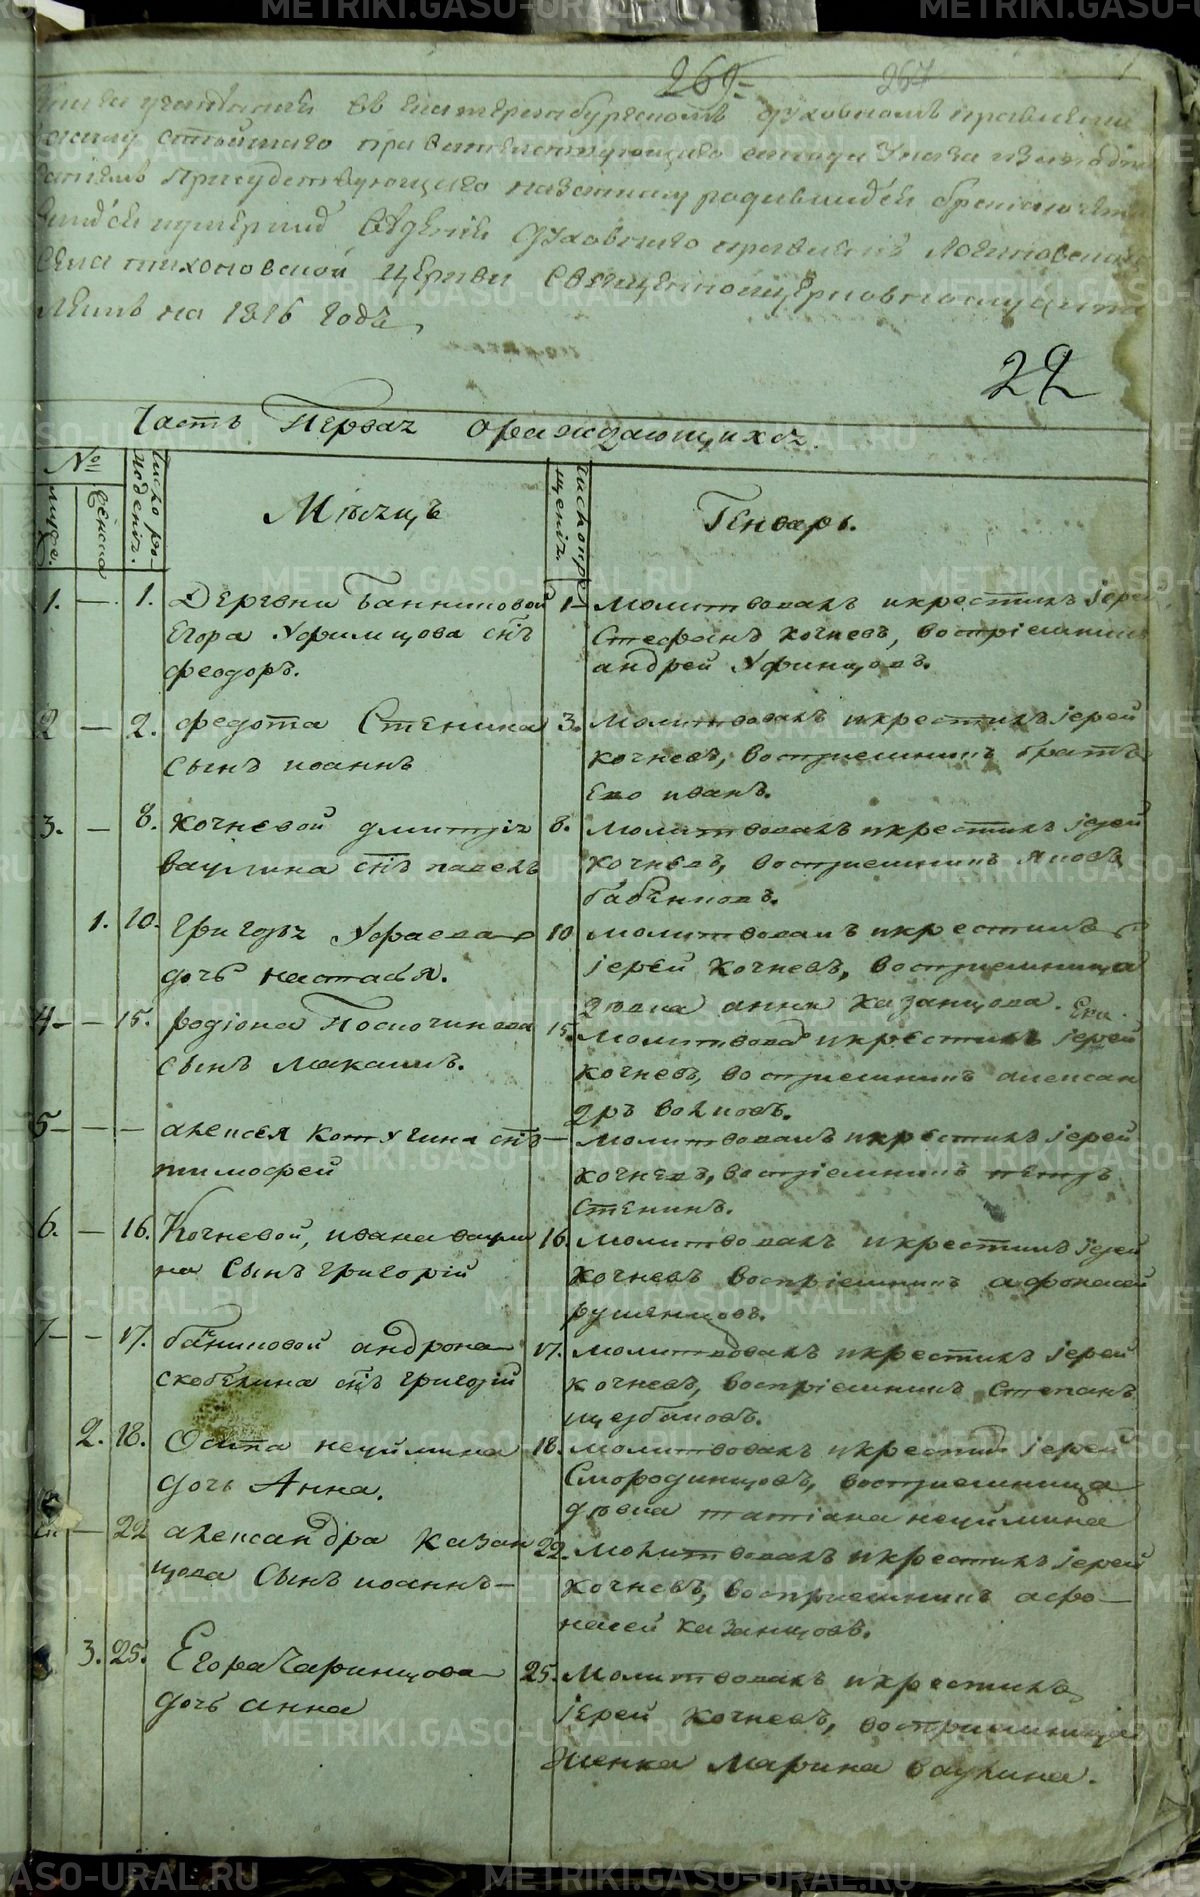 265
267
1
въ екатеринбургскомъ духовномъ правлении
святейшаго правительствующаго синода Указа
присудствующаго родившихся
ведении духовнаго правления Логиновскаго
села тихоновской церкви
на 1816 годъ
22
Часть Первая о раждающихся
№
мужс.
женска
Число рождения.
Мѣсяцъ
число крещения.
Генварь.
1. — 1. Деревни Банниковой
Егора Уфимцова снъ
феодоръ.
1 молитвовалъ и крестилъ іерей
Стефанъ кочневъ, воспріемникъ
андрей Уфинцовъ.
2 — 2. федота Стенина
сынъ иоаннъ
3. молитвовалъ и крестилъ іерей
кочневъ, восприемникъ братъ
Ево иванъ.
3. — 8. кочневой дмитрія
ваулина снъ павелъ
8. молитвовалъ и крестилъ іерей
кочневъ, восприемникъ яковъ
бабкиновъ.
1. 10. григорья
дочь настасья.
10 молитвовалъ и крестилъ
іерей кочневъ, восприемница
девка анна казанцова.
4 — 15. родіона Поспочинова
сынъ максимъ.
15. молитвовалъ и крестилъ іерей
кочневъ, восприемникъ алексан
дръ волковъ.
5 — — алексея котугина снъ
тимофей
— молитвовалъ и крестилъ іерей
кочневъ, воспріемникъ петръ
Стенинъ.
6. — 16. Кочневой, ивана ваули
на сынъ григорій
16. молитвовалъ и крестилъ іерей
кочневъ воспріемникъ афонасей
румянцовъ.
7 — 17. банниковой андрона
скобелина снъ григорій
17. молитвовалъ и крестилъ іерей
кочневъ, воспріемникъ степанъ
щербаковъ.
2. 18. Осипа неуймина
дочь Анна.
18. молитвовалъ и крестилъ іерей
Смородинцовъ, восприемница
девка татіана неуймина
— 22 александра казан
цова сынъ иоаннъ —
22. молитвовалъ и крестилъ іерей
кочневъ, восприемникъ афо
насей казанцовъ.
3. 25. Егора Чаринцова
дочь анна
25. Молитвовалъ и крестилъ
іерей кочневъ, восприемница
женка Марина ваулина.
METRIKI.GASO-URAL.RU